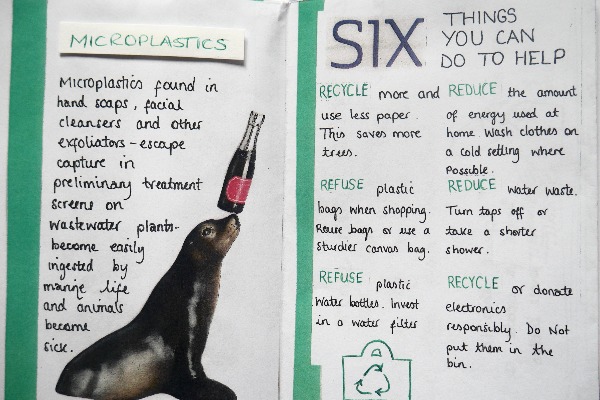 MICROPLASTICS
Microplastics found in
hand soaps, facial
cleansers and other
exfoliators - escape
capture in
preliminary treatment
screens on
wastewater plants -
become easily
ingested by
marine life
and animals
become
sick.
SIX THINGS
YOU CAN
DO TO HELP
RECYCLE more and
use less paper.
This saves more
trees.
REDUCE the amount
of energy used at
home. Wash clothes on
a cold setting where
possible.
REFUSE plastic
bags when shopping.
Reuse bags or use a
sturdier canvas bag.
REDUCE water waste.
Turn taps off or
take a shorter
shower.
REFUSE plastic
water bottles. Invest
in a water filter
RECYCLE or donate
electronics
responsibly. Do Not
put them in the
bin.